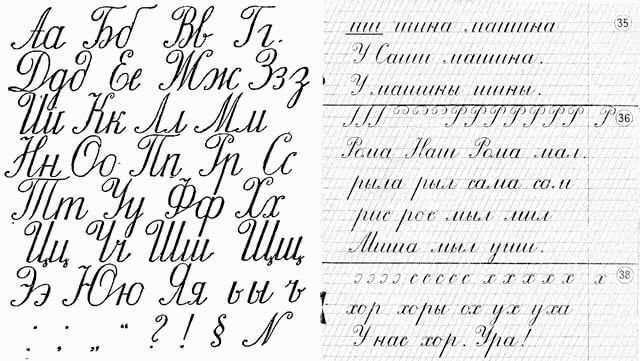 Аа Бб Вв Гг.
Ддд Ее Жж Ззз
Ии Кк Лл Мм
Нн Оо Пп Рр Сс
Тт Уу Фф Хх
Цц Чч Шш Щщ
Ээ Юю Яя ьы ъ
. ; „ “ ? ! § N
35
ши шина машина
У Саши машина.
У машины шины.
36
Р Р Р Р Р Р Р Р
Рома Наш Рома мал.
рыла рыл сама сом
рис рос мыл мил
Миша мыл уши.
38
э э э э с с с с с х х х х х х
хор хоры ох ух уха
У нас хор. Ура!